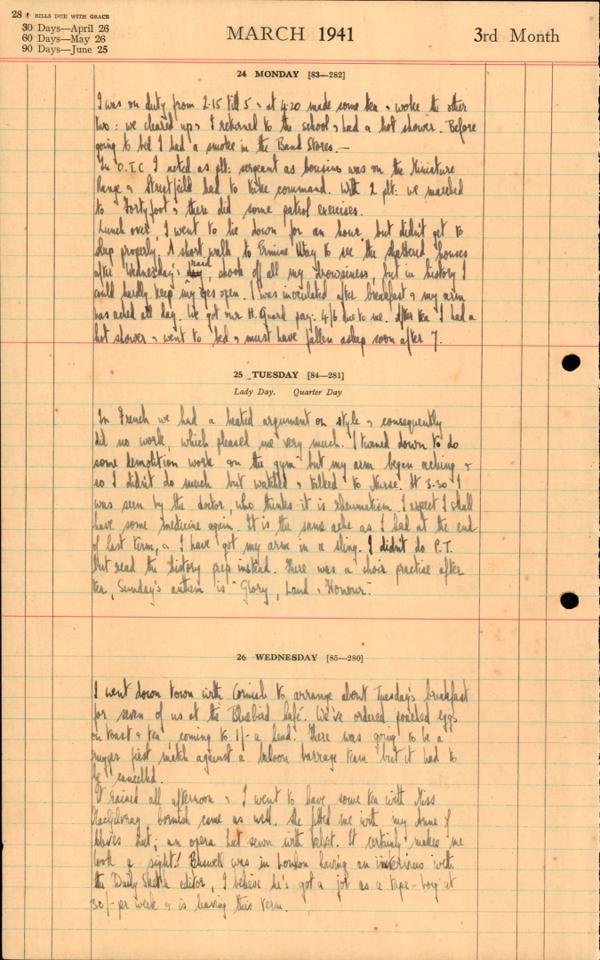 28 BILLS DUE WITH GRACE
30 Days—April 26
60 Days—May 26
90 Days—June 25
MARCH 1941
3rd Month
24 MONDAY [83—282]
I was on duty from 2.15 till 5 & at 4.20 made some tea & woke the other
two: we cleared up & I returned to the school & had a hot shower. Before
going to bed I had a smoke in the Band Stores.—
In O.T.C I acted as plt: sergeant as was on the Miniature
Range & Streetfield had to take command. With 2 plt: we marched
to & there did some patrol exercises.
Lunch over, I went to lie down for an hour but didn't get to
sleep properly. A short walk to Ermine Way to see the shattered houses
after Wednesday's raid shook off all my drowsiness, but in history I
could hardly keep my eyes open. I was inoculated after breakfast & my arm
has ached all day. We got our H. Guard pay: 4/6 due to me. After tea I had a
hot shower & went to bed & must have fallen asleep soon after 7.
25 TUESDAY [84—281]
Lady Day. Quarter Day
In French we had a heated argument on style & consequently
did no work, which pleased me very much. I turned down to do
some demolition work on the gym but my arm began aching &
so I didn't do much but watched & talked to Nurse! At 5.30 I
was seen by the doctor, who thinks it is rheumatism. I expect I shall
have some medicine again. It is the same ache as I had at the end
of last term, & I have got my arm in a sling. I didn't do P.T.
but read the history prep instead. There was a choir practice after
tea, Sunday's anthem is "Glory, Laud & Honour."
26 WEDNESDAY [85—280]
I went down town with Cornish to arrange about Tuesday's breakfast
for seven of us at the Bluebird Café. We've ordered poached eggs
on toast & tea coming to 1/- a head! There was going to be a
rugger first match against a baloon barrage team but it had to
be cancelled.
It rained all afternoon & I went to have some tea with Miss
Cornish came as well. She fitted me with my Anne of
Cleves hat; an opera hat sewn with velvet. It certainly makes me
look a sight! was in London having an interview with
the Daily Sketch editor, I believe he's got a job as a tape-boy at
30/- per week & is leaving this term.